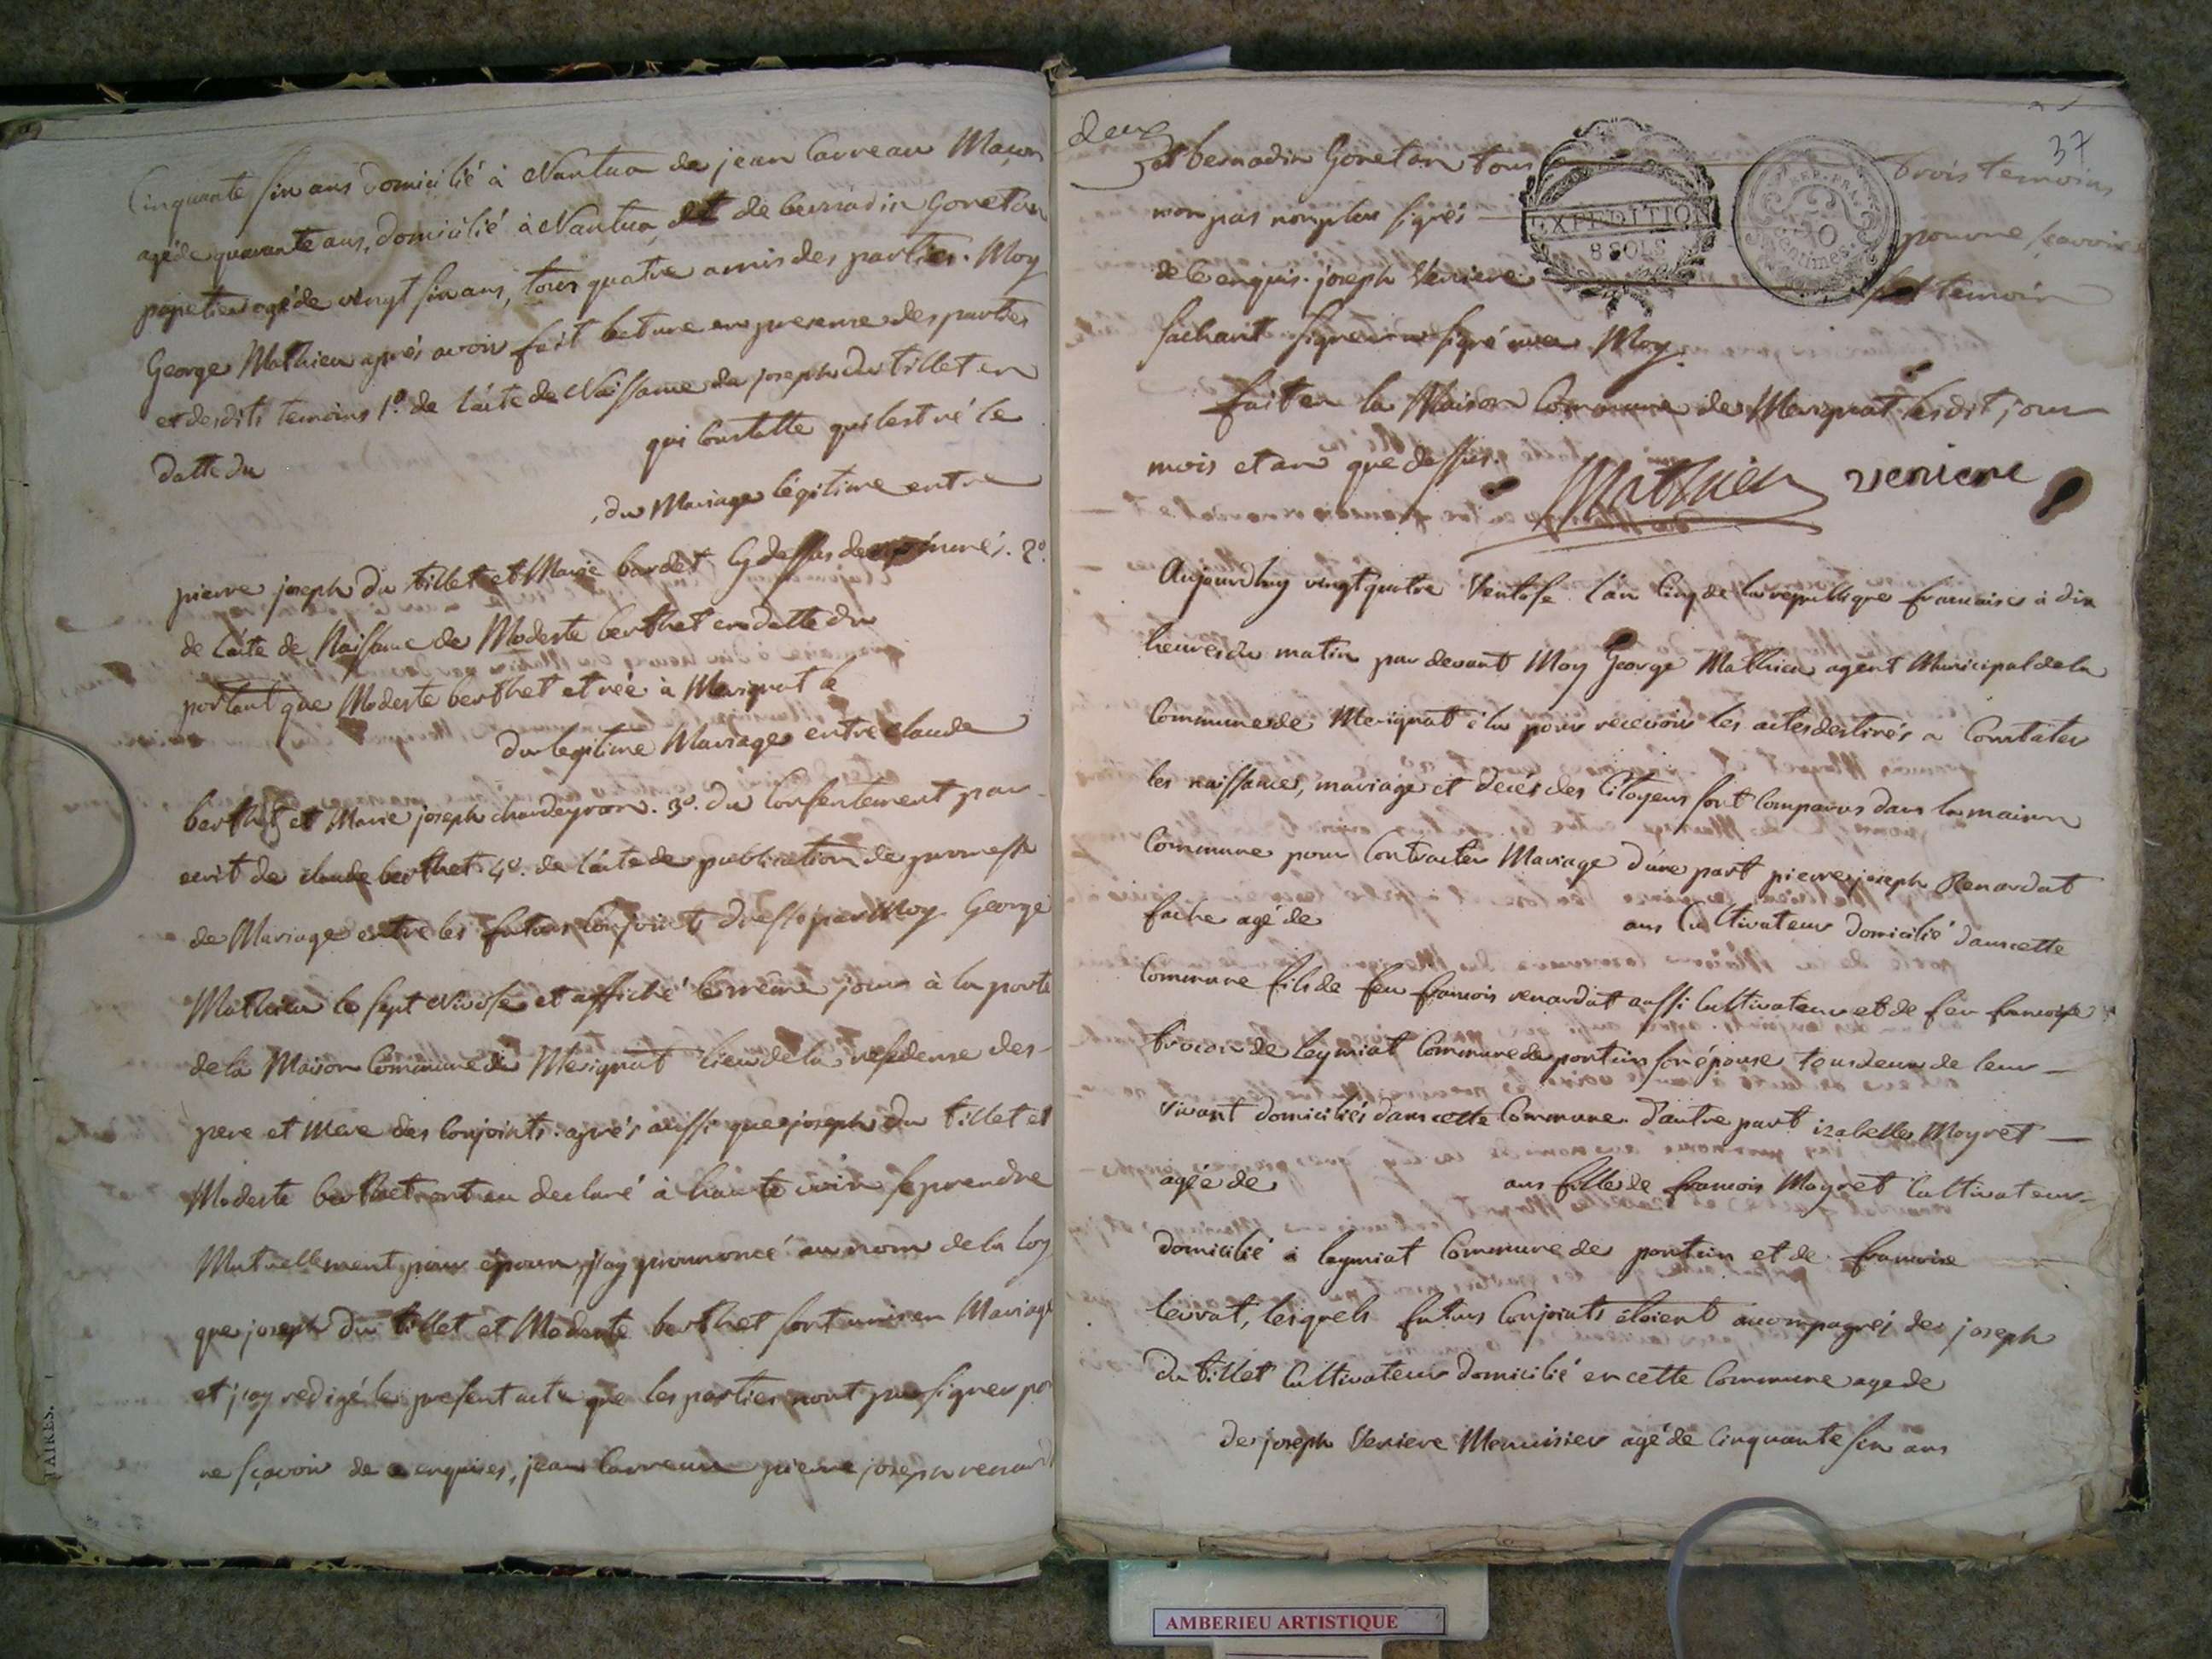 Cinquante six ans domicilié à Nantua de jean Carreau Maçon
agé de quarante ans, domicilié à Nantua, et de bernadin Goneton
papetier agé de vingt six ans, tous quatre amis des parties. Moy
George Mathieu aprés avoir fait lecture en presence des parties
et desdits temoins 1º. de l'acte de Naissance de joseph du tillet en
datte du qui Constatte qu'il est né le
du Mariage légitime entre
pierre joseph du tillet et Marie bardet Cy dessus denommés. 2º.
de l'acte de Naissance de Modeste berthet en datte du
portant que Modeste berthet et née à Merignat le
du legitime Mariage entre claude
berthet et Marie joseph chardeyron. 3º. du Consentement par
ecrit de claude berthet. 4º. de l'acte de publication de promesse
de Mariage entre les futurs Conjoints dressé par Moy George
Mathieu le sept Nivôse et affiché le même jour à la porte
de la Maison Commune de Merignat lieu de la residense des
pere et mere des Conjoints. aprés aussi que joseph du tillet et
Modeste berthet ont eu declaré à haute voix se prendre
Mutuellement pour époux, j'ay prononcé au nom de la loy
que joseph du tillet et Modeste berthet sont unis en Mariage
et j'ay redigé le present acte que les parties n'ont pu signer po
ne sçavoir de ce enquises, jean Carreau pierre joseph renard
deux
et bernadin Goneton tous trois temoins
n'on pas non plus signés pour ne sçavoir
EXPEDITION
8 SOLS
REP. FRA.
50
Centimes.
37
de ce enquis. joseph Veniere temoin
sachant signer a signé avec Moy.
fait en la Maison Commune de Merignat lesdit jour
mois et an que dessus.
Mathieu veniere
Aujourdhuy vingt quatre Ventôse l'an Cinq de la republique francaise à dix
heures du matin par devant Moy George Mathieu agent Municipal de la
Commune de Merignat élu pour recevoir les actes destinés a Constater
les naissance, mariage et decés des Citoyens sont Comparus dans la maison
Commune pour Contracter Mariage d'une part pierre joseph Renardat
fache agé de ans Cultivateur domicilié dans cette
Commune fils de feu francois renardat aussi Cultivateur et de feu francoise
de leymiat Commune de poncin son épouse tous deux de leur
vivant domiciliés dans cette Commune. d'autre part izabelle Moyret
agée de ans fille de francois Moyret Cultivateur
domicilié à leymiat Commune de poncin et de francoise
levrat, lesquels futurs Conjoints étoient accompagnés de joseph
du tillet Cultivateur domicilié en cette Commune agé de
de joseph Veniere Menuisier agé de Cinquante six ans
AMBERIEU ARTISTIQUE